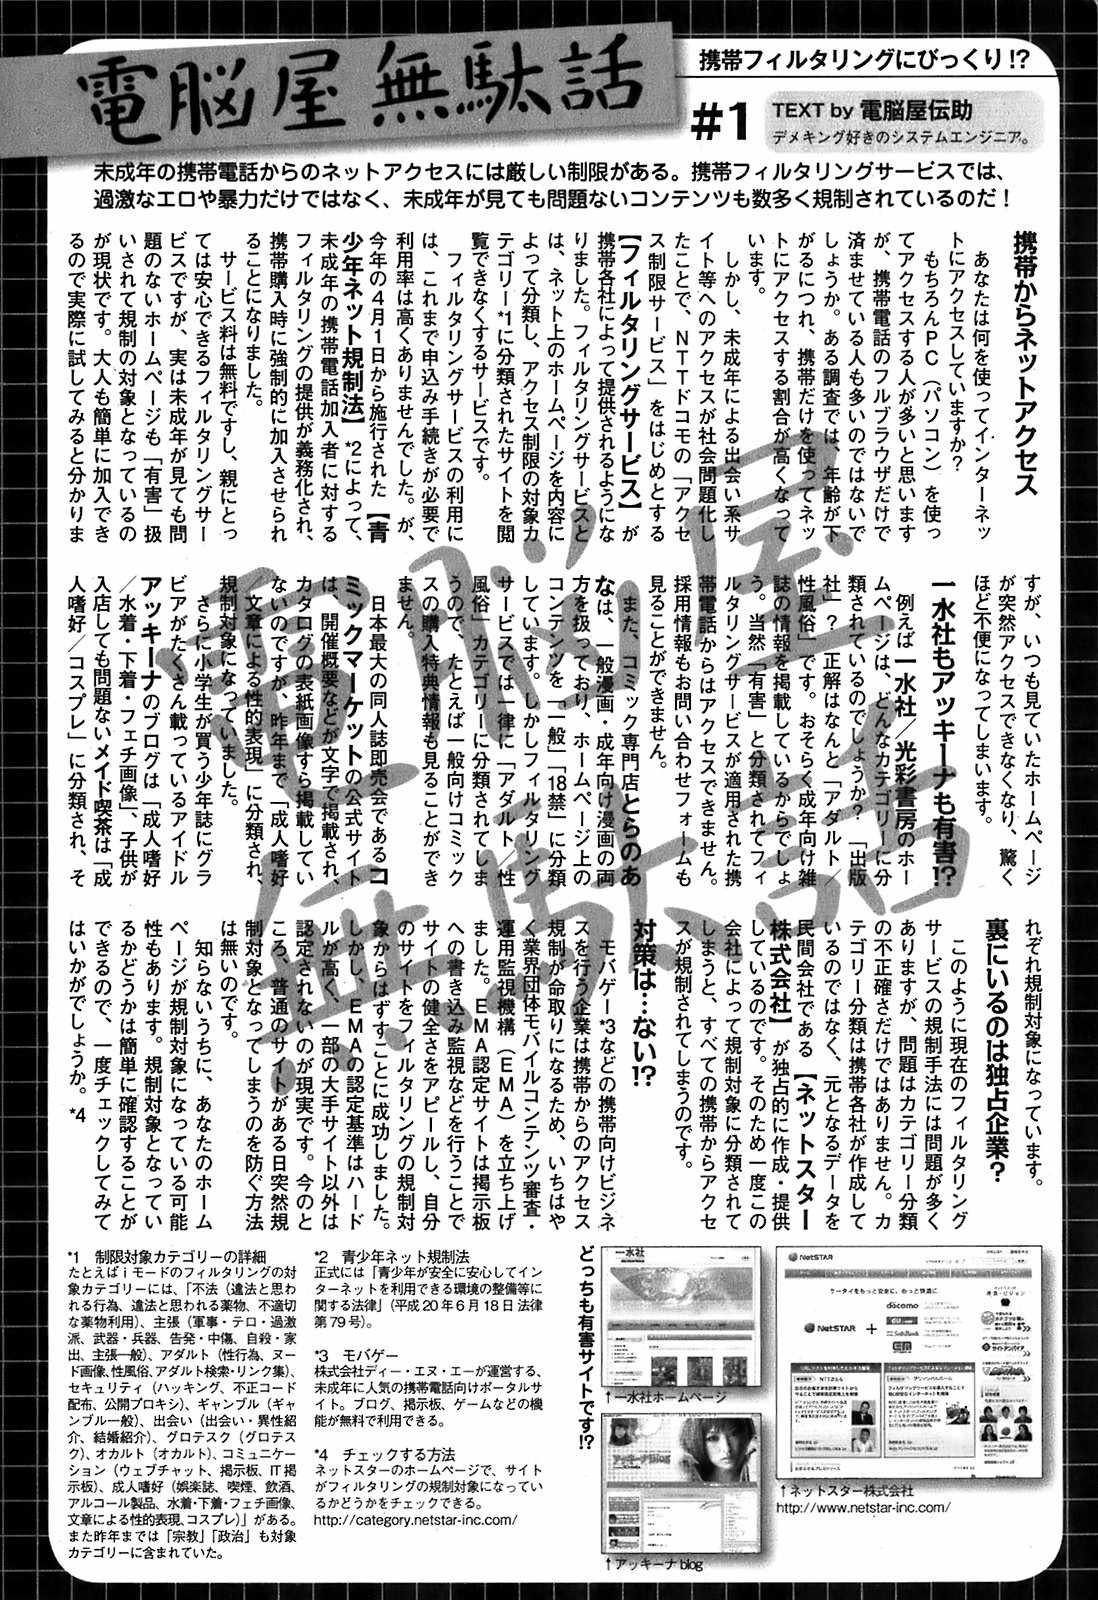 電脳屋無駄話
携帯フィルタリングにびっくり!?
#1
TEXT by 電脳屋伝助
デメキング好きのシステムエンジニア。
未成年の携帯電話からのネットアクセスには厳しい制限がある。携帯フィルタリングサービスでは、
過激なエロや暴力だけではなく、未成年が見ても問題ないコンテンツも数多く規制されているのだ!
携帯からネットアクセス
あなたは何を使ってインターネッ
トにアクセスしていますか?
もちろんPC(パソコン)を使っ
てアクセスする人が多いと思います
が、携帯電話のフルブラウザだけで
済ませている人も多いのではないで
しょうか。ある調査では、年齢が下
がるにつれ、携帯だけを使ってネッ
トにアクセスする割合が高くなって
います。
しかし、未成年による出会い系サ
イト等へのアクセスが社会問題化し
たことで、NTTドコモの「アクセ
ス制限サービス」をはじめとする
【フィルタリングサービス】が
携帯各社によって提供されるようにな
りました。フィルタリングサービスと
は、ネット上のホームページを内容に
よって分類し、アクセス制限の対象カ
テゴリー*1に分類されたサイトを閲
覧できなくするサービスです。
フィルタリングサービスの利用に
は、これまで申込み手続きが必要で
利用率は高くありませんでした。が、
今年の4月1日から施行された【青
少年ネット規制法】*2によって、
未成年の携帯電話加入者に対する
フィルタリングの提供が義務化され、
携帯購入時に強制的に加入させられ
ることになりました。
サービス料は無料ですし、親にとっ
ては安心できるフィルタリングサー
ビスですが、実は未成年が見ても問
題のないホームページも「有害」扱
いされて規制の対象となっているの
が現状です。大人も簡単に加入でき
るので実際に試してみると分かりま
すが、いつも見ていたホームページ
が突然アクセスできなくなり、驚く
ほど不便になってしまいます。
一水社もアッキーナも有害!?
例えば一水社/光彩書房のホー
ムページは、どんなカテゴリーに分
類されているのでしょうか?「出版
社」?正解はなんと「アダルト/
性風俗」です。おそらく成年向け雑
誌の情報を掲載しているからでしょ
う。当然「有害」と分類されてフィ
ルタリングサービスが適用された携
帯電話からはアクセスできません。
採用情報もお問い合わせフォームも
見ることができません。
また、コミック専門店とらのあ
なは、一般漫画・成年向け漫画の両
方を扱っており、ホームページ上の
コンテンツを「一般」「18禁」に分類
しています。しかしフィルタリング
サービスでは一律に「アダルト/性
風俗」カテゴリーに分類されてしま
うので、たとえば一般向けコミック
スの購入特典情報も見ることができ
ません。
日本最大の同人誌即売会であるコ
ミックマーケットの公式サイト
は、開催概要などが文字で掲載され、
カタログの表紙画像すら掲載してい
ないのですが、昨年まで「成人嗜好
/文章による性的表現」に分類され、
規制対象になっていました。
さらに小学生が買う少年誌にグラ
ビアがたくさん載っているアイドル
アッキーナのブログは「成人嗜好
/水着・下着・フェチ画像」、子供が
入店しても問題ないメイド喫茶は「成
人嗜好/コスプレ」に分類され、そ
れぞれ規制対象になっています。
裏にいるのは独占企業?
このように現在のフィルタリング
サービスの規制手法には問題が多く
ありますが、問題はカテゴリー分類
の不正確さだけではありません。カ
テゴリー分類は携帯各社が作成して
いるのではなく、元となるデータを
民間会社である【ネットスター
株式会社】が独占的に作成・提供
しているのです。そのため一度この
会社によって規制対象に分類されて
しまうと、すべての携帯からアクセ
スが規制されてしまうのです。
対策は…ない!?
モバゲー*3などの携帯向けビジネ
スを行う企業は携帯からのアクセス
規制が命取りになるため、いちはや
く業界団体モバイルコンテンツ審査・
運用監視機構(EMA)を立ち上げ
ました。EMA認定サイトは掲示板
への書き込み監視などを行うことで
サイトの健全さをアピールし、自分
のサイトをフィルタリングの規制対
象からはずすことに成功しました。
しかし、EMAの認定基準はハード
ルが高く、一部の大手サイト以外は
認定されないのが現実です。今のと
ころ、普通のサイトがある日突然規
制対象となってしまうのを防ぐ方法
は無いのです。
知らないうちに、あなたのホーム
ページが規制対象になっている可能
性もあります。規制対象となってい
るかどうかは簡単に確認することが
できるので、一度チェックしてみて
はいかがでしょうか。*4
電脳屋
無駄話
*1 制限対象カテゴリーの詳細
たとえばiモードのフィルタリングの対
象カテゴリーには、「不法(違法と思わ
れる行為、違法と思われる薬物、不適切
な薬物利用)、主張(軍事・テロ・過激
派、武器・兵器、告発・中傷、自殺・家
出、主張一般)、アダルト(性行為、ヌー
ド画像、性風俗、アダルト検索・リンク集)、
セキュリティ(ハッキング、不正コード
配布、公開プロキシ)、ギャンブル(ギャ
ンブル一般)、出会い(出会い・異性紹
介、結婚紹介)、グロテスク(グロテス
ク)、オカルト(オカルト)、コミュニケー
ション(ウェブチャット、掲示板、IT掲
示板)、成人嗜好(娯楽誌、喫煙、飲酒、
アルコール製品、水着・下着・フェチ画像、
文章による性的表現、コスプレ)」がある。
また昨年までは「宗教」「政治」も対象
カテゴリーに含まれていた。
*2 青少年ネット規制法
正式には「青少年が安全に安心してイン
ターネットを利用できる環境の整備等に
関する法律」(平成20年6月18日法律
第79号)。
*3 モバゲー
株式会社ディー・エヌ・エーが運営する、
未成年に人気の携帯電話向けポータルサ
イト。ブログ、掲示板、ゲームなどの機
能が無料で利用できる。
*4 チェックする方法
ネットスターのホームページで、サイト
がフィルタリングの規制対象になってい
るかどうかをチェックできる。
http://category.netstar-inc.com/
どっちも有害サイトです!?
一水社
↑一水社ホームページ
↑アッキーナblog
NetSTAR
ケータイをもっと安全に、もっと快適に
NetSTAR
+
docomo
SoftBank
↑ネットスター株式会社
http://www.netstar-inc.com/